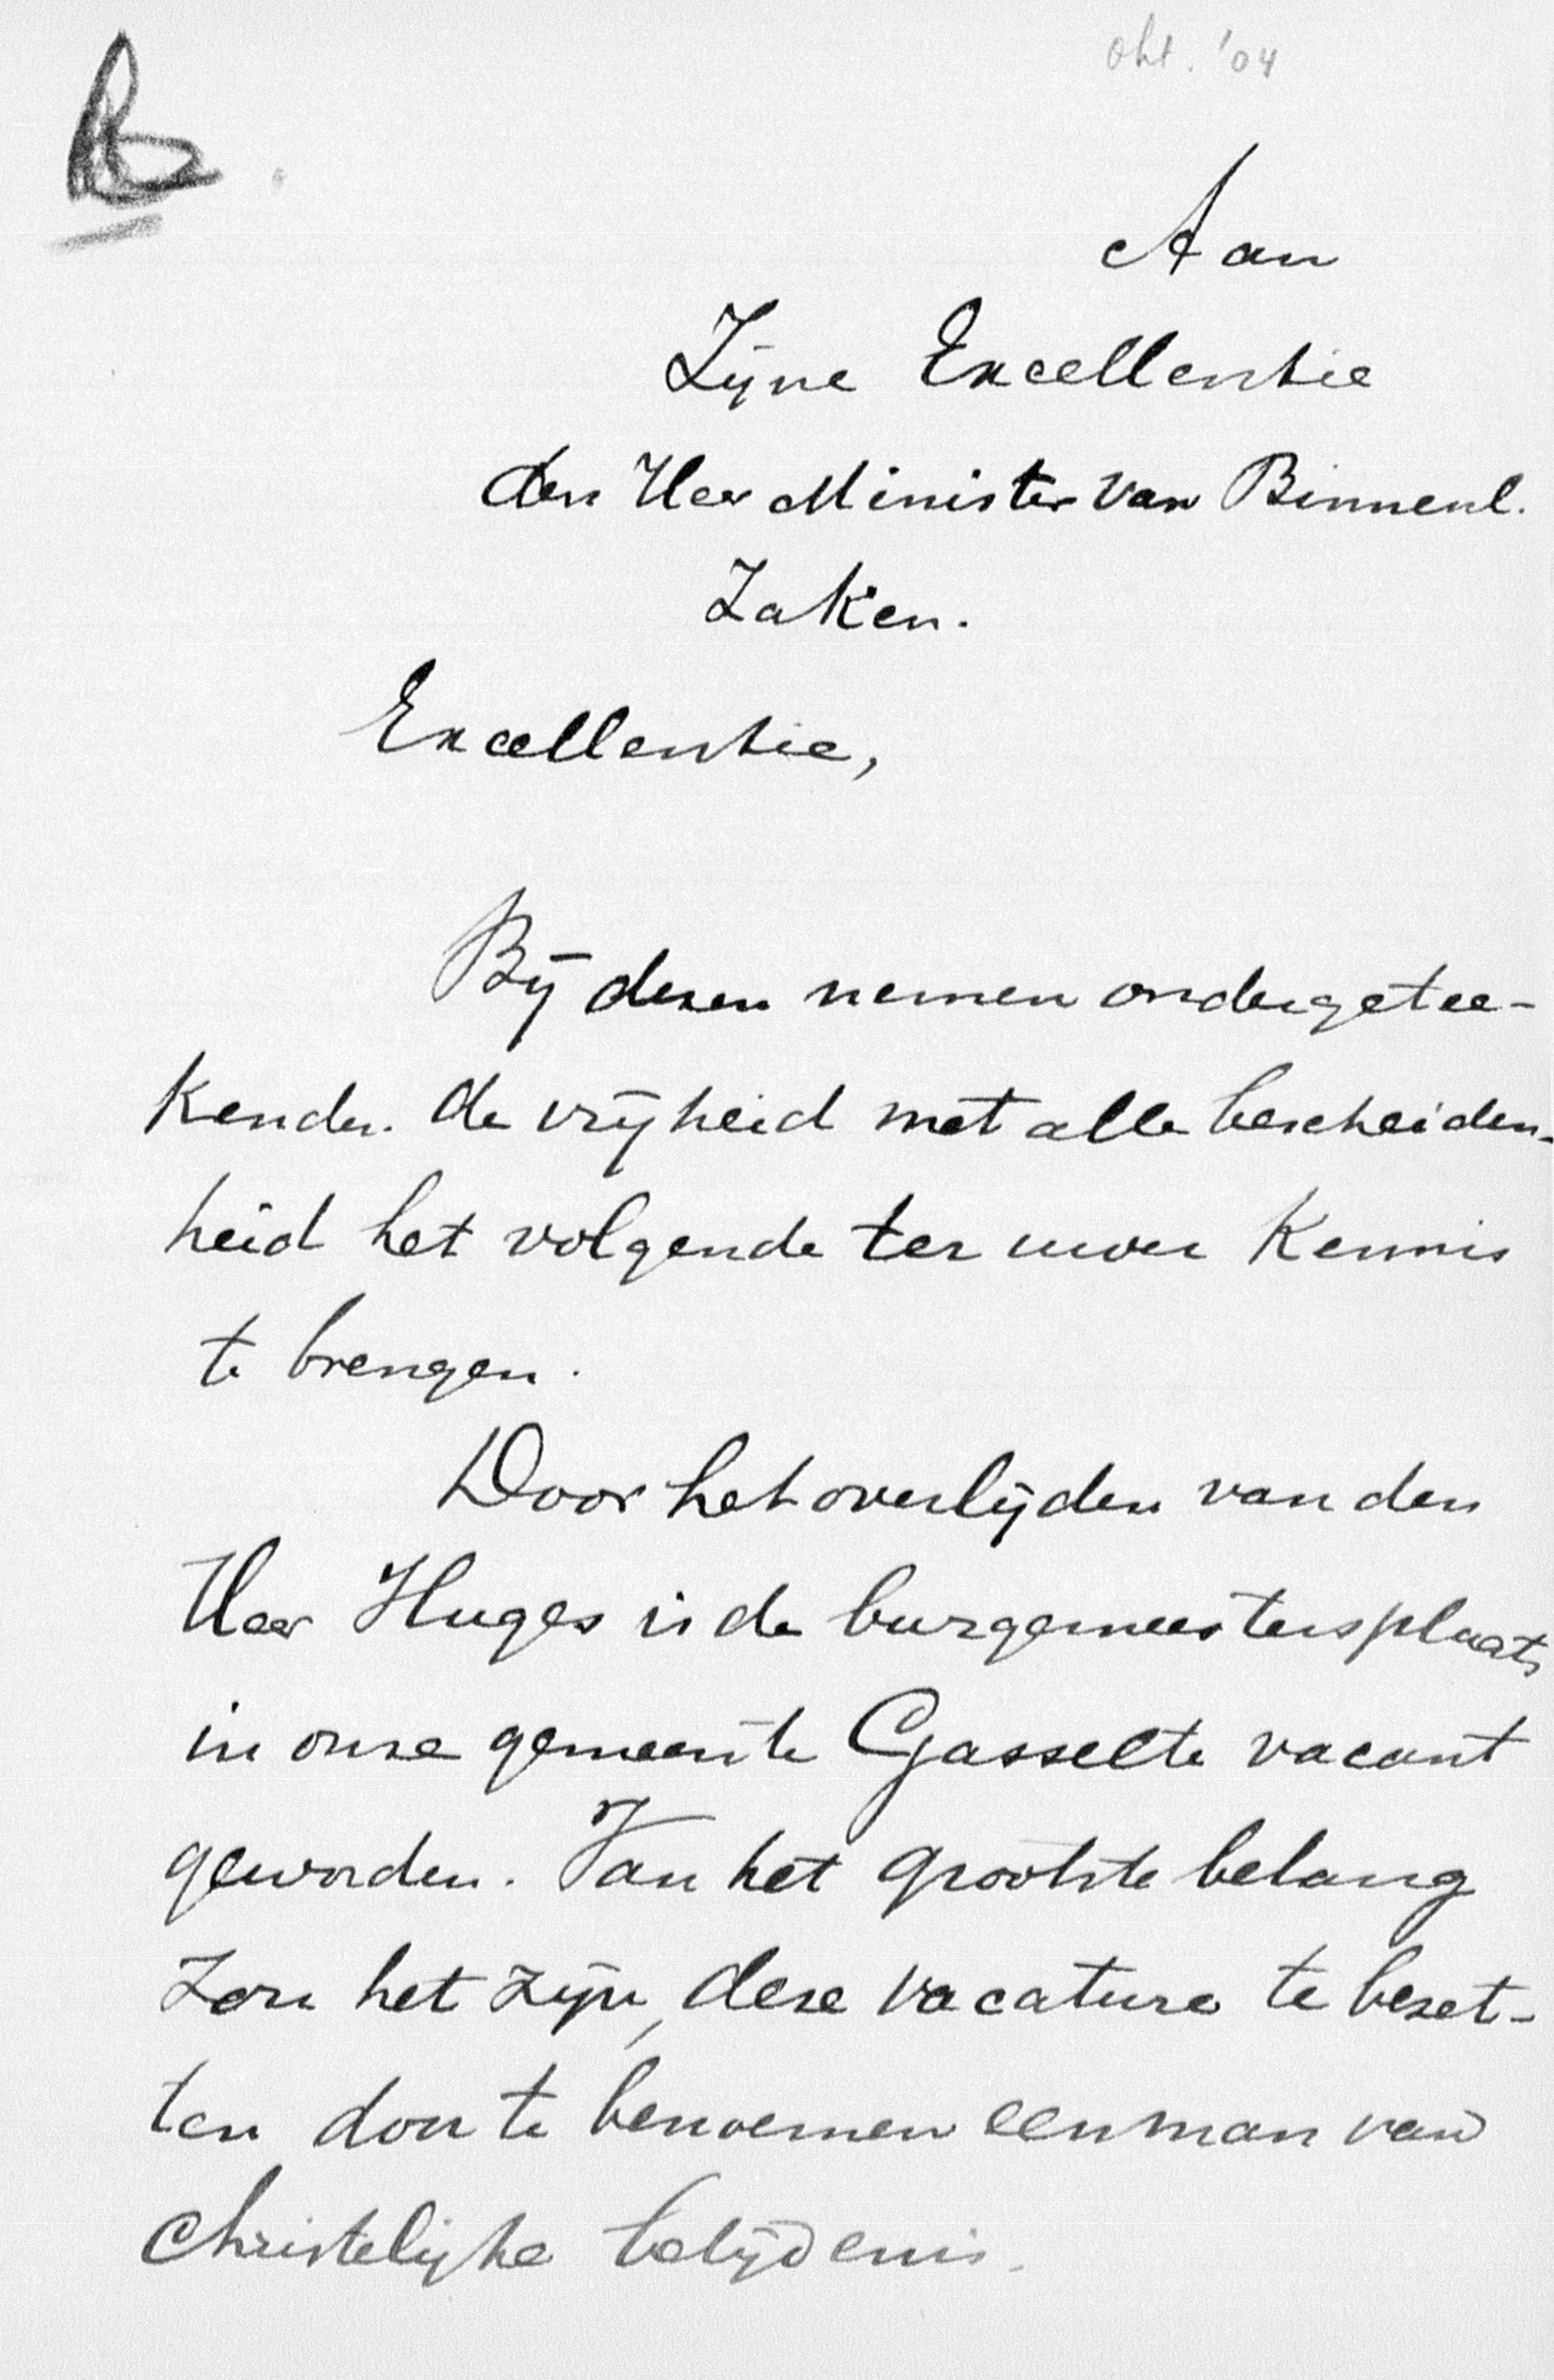 okt. '04
Aan
Zijne Excellentie
den Heer Minister van Binnenl.
Zaken.
Excellentie,
Bij dezen nemen ondergetee-
kenden de vrijheid met alle bescheiden-
heid het volgende ter uwer kennis
te brengen.
Door het overlijden van den
Heer Huges is de burgemeestersplaats
in onze gemeente Gasselte vacant
geworden. Van het grootste belang
zou het zijn, deze vacature te bezet-
ten door te benoemen een man van
Christelijke belijdenis.